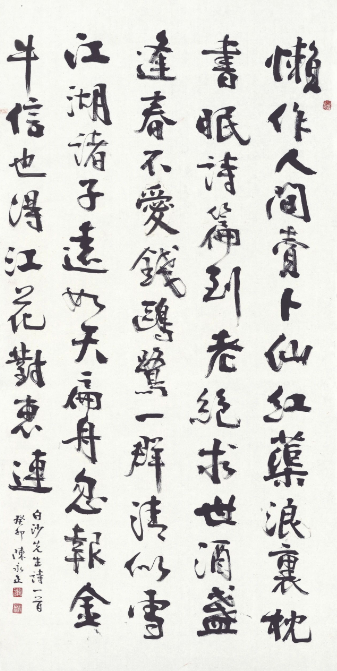 懶作人間賣卜仙紅蕖浪裏枕
書眠詩篇到老絕求世酒盞
逢春不愛錢鷗鷺一群清似雪
江湖諸子遠如天扁舟忽報金
牛信也得江花對惠連
白沙先生詩一首
癸卯陳永正